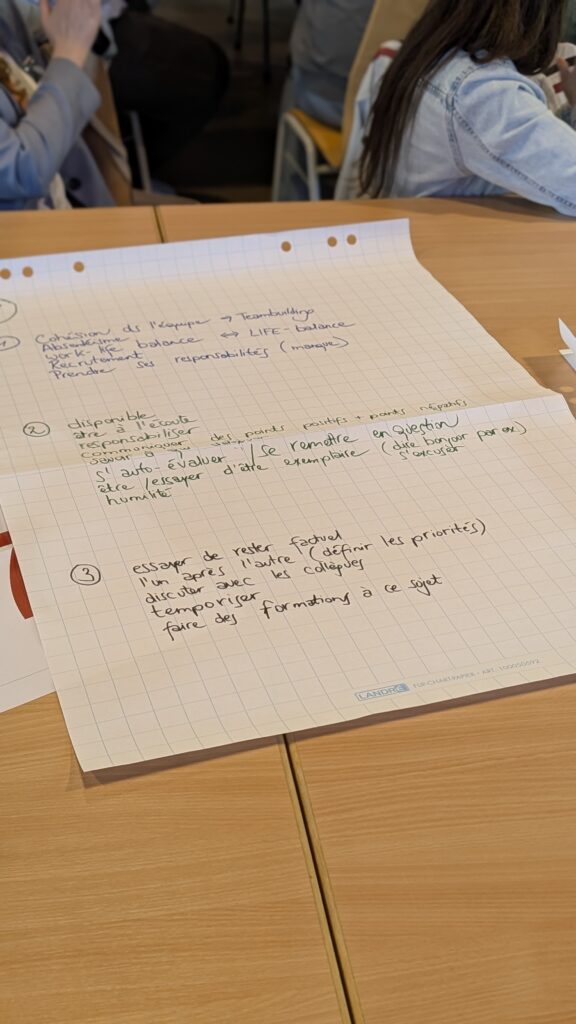 ①
Cohésion ds l'équipe → Teambuilding
Absentéisme
work-life balance ↔ LIFE-balance
Recrutement
Prendre ses responsabilités (manque)
② disponible
être à l'écoute
responsabiliser
communiquer des points positifs + points négatifs
savoir
s'auto-évaluer / se remettre en question
être / essayer d'être exemplaire (dire bonjour par ex)
s'excuser
humilité
③ essayer de rester factuel
l'un après l'autre (définir les priorités)
discuter avec les collègues
temporiser
faire des formations à ce sujet
LANDRÉ FLIPCHARTPAPIER - ART. 100050592